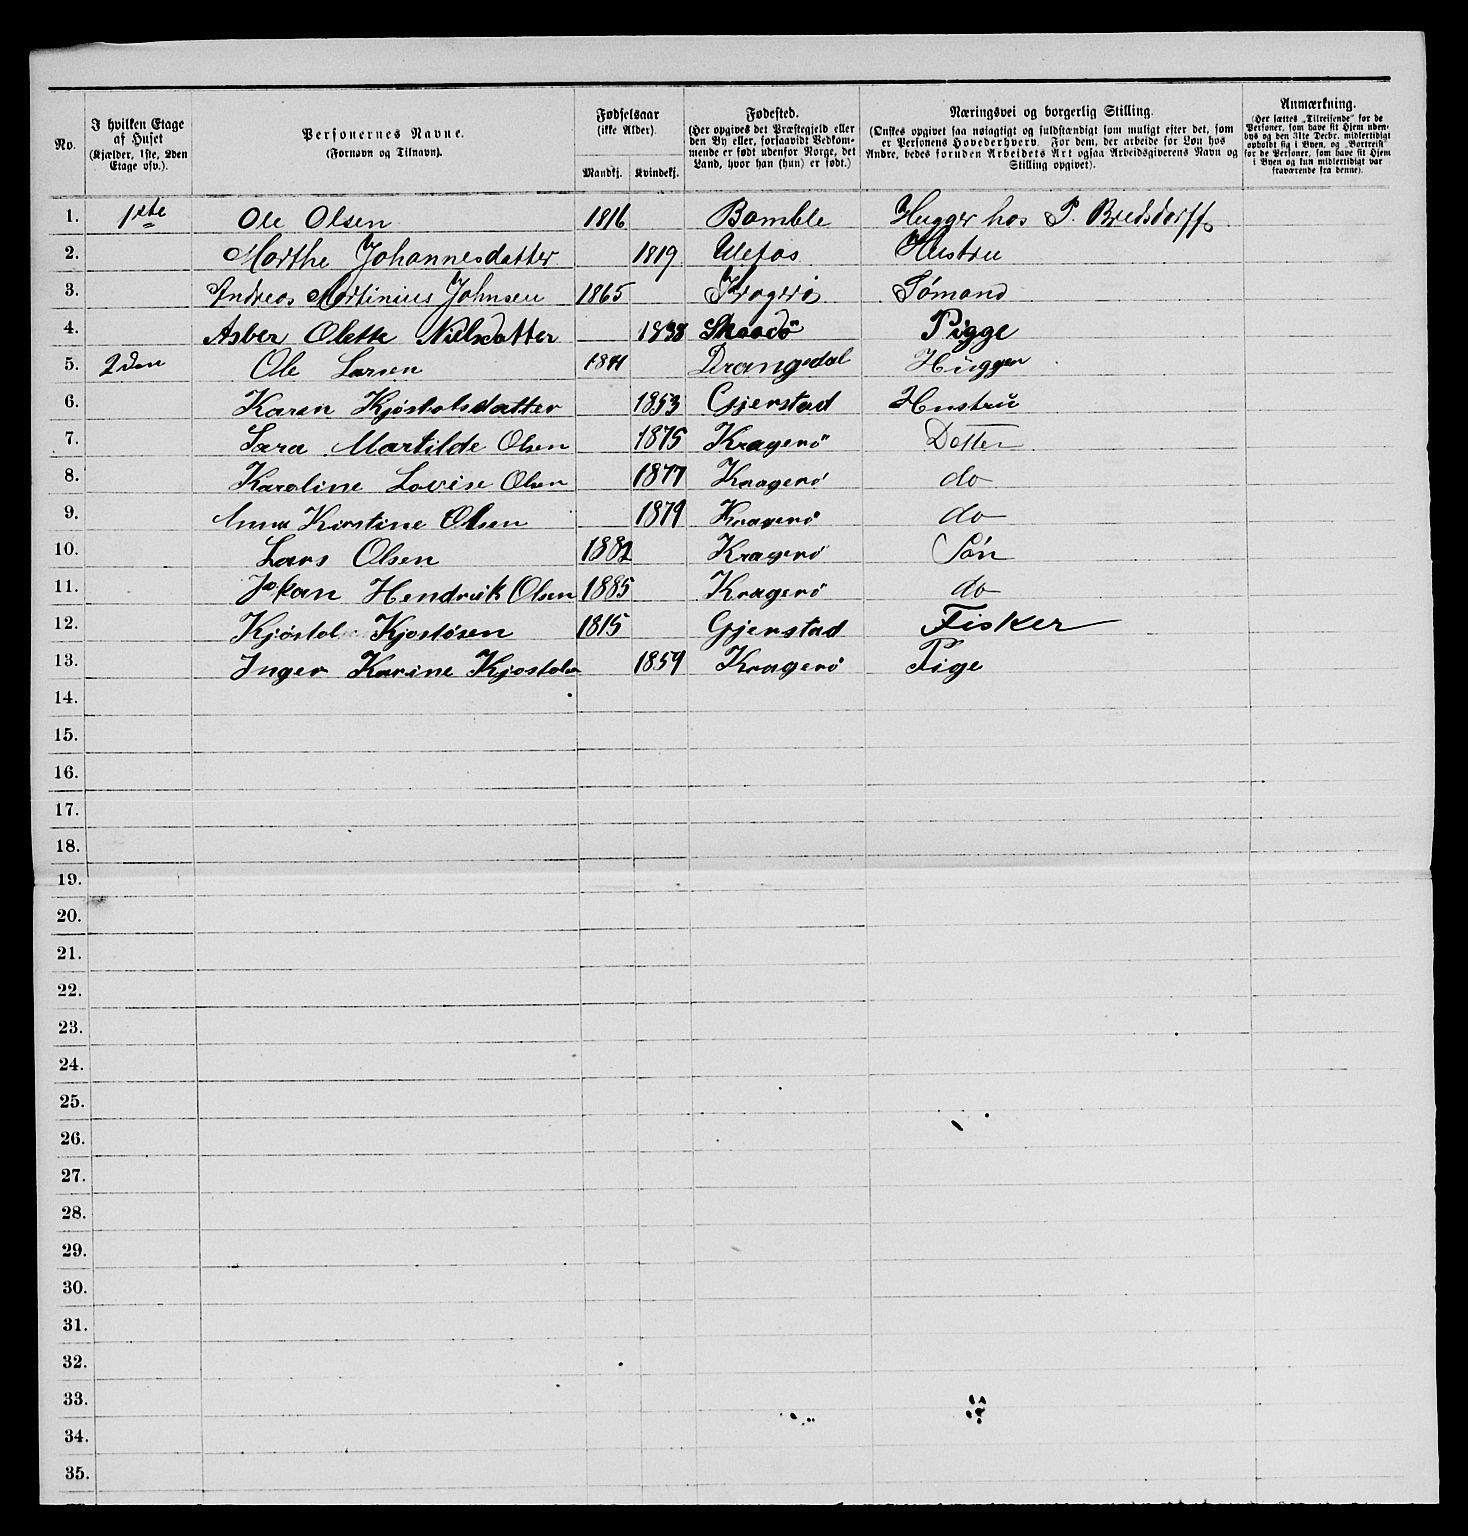 No.
I hvilken Etage af Huset (Kjælder, 1ste, 2den Etage osv.).
Personernes Navne. (Fornavn og Tilnavn).
Fødselsaar (ikke Alder).
Mandkj. Kvindekj.
Fødested. (Her opgives det Præstegjeld eller den By eller, forsaavidt Vedkommende er født udenfor Norge, det Land, hvor han (hun) er født.)
Næringsvei og borgerlig Stilling. (Ønskes opgivet saa nøiagtigt og fuldstændigt som muligt efter det, som er Personens Hovederhverv. For dem, der arbeide for Løn hos Andre, bedes foruden Arbeidets Art ogsaa Arbeidsgiverens Navn og Stilling opgivet).
Anmærkning. (Her sættes „Tilreisende" for de Personer, som have sit Hjem udenbys og den 31te Decbr. midlertidigt opholdt sig i Byen, og „Bortreist" for de Personer, som have sit Hjem i Byen og kun midlertidigt var fraværende fra denne).
1. 1ste Ole Olsen 1816 Bamble Hugger hos P. Bredsdorff
2. Marthe Johannesdatter 1819 Ulefos Hustru
3. Andreas Martinius Johnsen 1865 Kragerö Sömand
4. Asber Olette Nielsdatter 1838 Skaadö Pigge
5. 2den Ole Larsen 1841 Drangedal Hugger
6. Karen Kjöstolsdatter 1853 Gjerstad Hustru
7. Sara Martilde Olsen 1875 Kragerö Datter
8. Karoline Lovise Olsen 1877 Kragerö do
9. Anna Kirstine Olsen 1879 Kragerö do
10. Lars Olsen 1882 Kragerö Sön
11. Johan Hendrik Olsen 1885 Kragerö do
12. Kjöstol Kjostösen 1815 Gjerstad Fisker
13. Inger Karine Kjostols 1859 Kragerö Pige
14.
15.
16.
17.
18.
19.
20.
21.
22.
23.
24.
25.
26.
27.
28.
29.
30.
31.
32.
33.
34.
35.